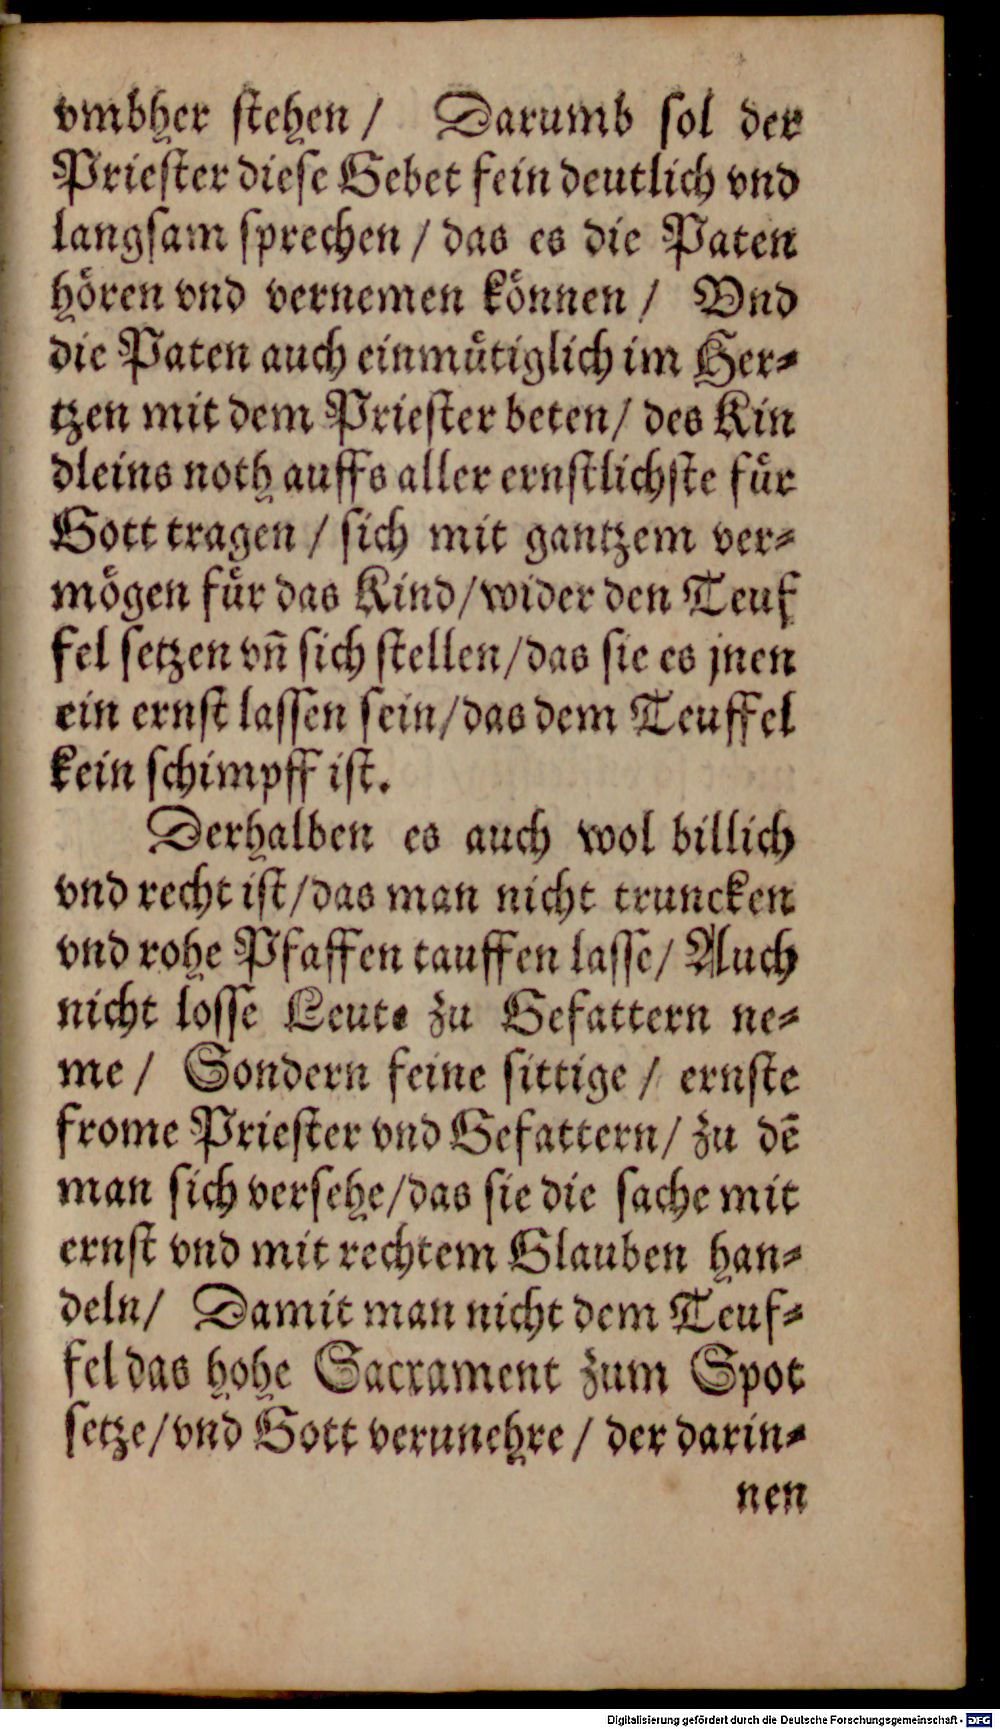 vmbher stehen / Darumb sol der
Priester diese Gebet fein deutlich vnd
langsam sprechen / das es die Paten
hören vnd vernemen können / Vnd
die Paten auch einmütiglich im Her-
tzen mit dem Priester beten / des Kin
dleins noth auffs aller ernstlichste für
Gott tragen / sich mit gantzem ver-
mögen für das Kind / wider den Teuf
fel setzen vñ sich stellen / das sie es jnen
ein ernst lassen sein / das dem Teuffel
kein schimpff ist.
Derhalben es auch wol billich
vnd recht ist / das man nicht truncken
vnd rohe Pfaffen tauffen lasse / Auch
nicht losse Leute zu Gefattern ne-
me / Sondern feine sittige / ernste
frome Priester vnd Gefattern / zu dē
man sich versehe / das sie die sache mit
ernst vnd mit rechtem Glauben han-
deln / Damit man nicht dem Teuf-
fel das hohe Sacrament zum Spot
setze / vnd Gott verunehre / der darin-
nen
Digitalisierung gefördert durch die Deutsche Forschungsgemeinschaft - DFG